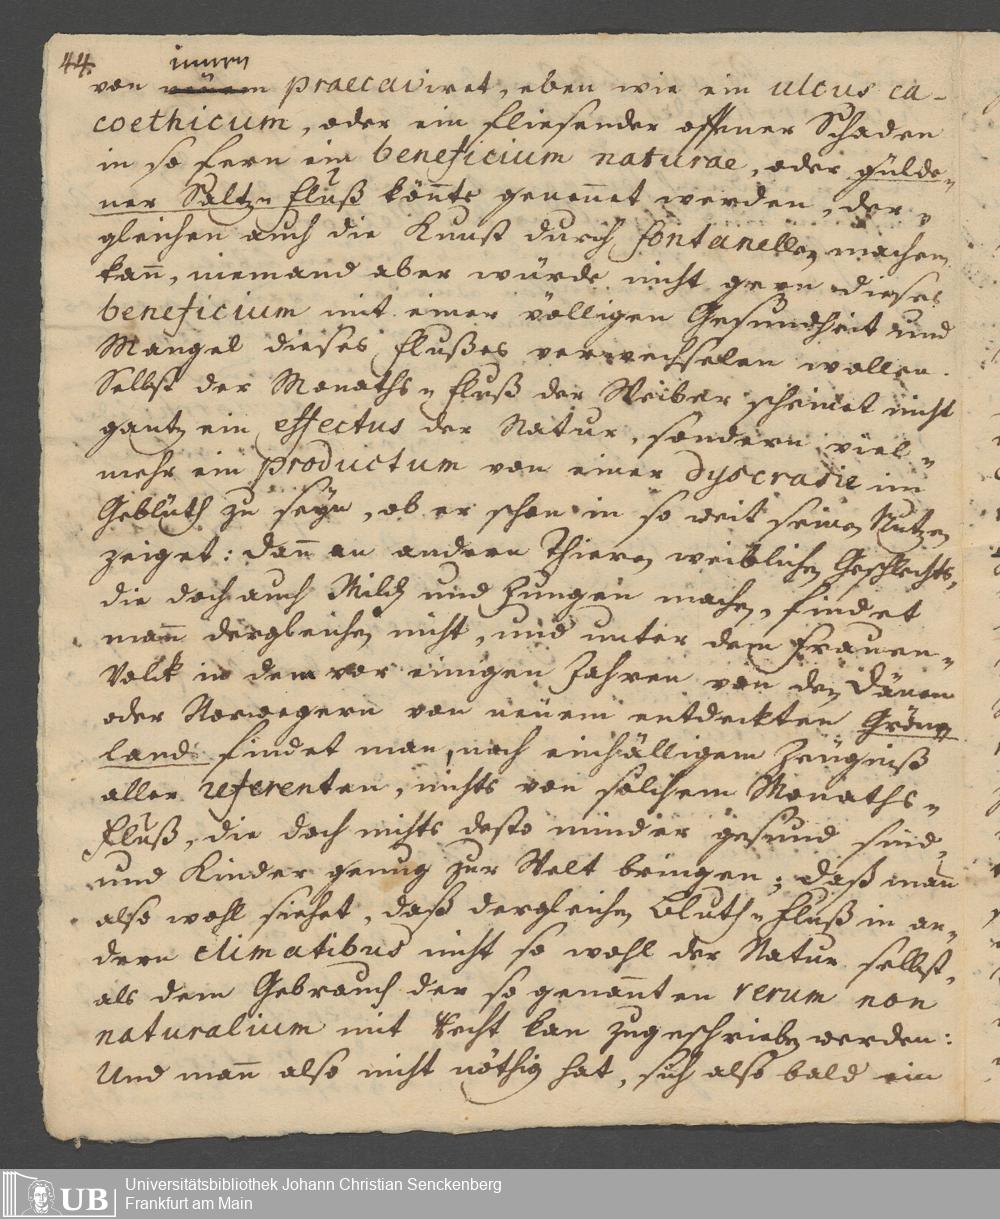 44.
innen
von neüem praecaviret, eben wie ein ulcus ca-
coethicum, oder ein fliesender offener Schaden
in so fern ein beneficium naturae, oder gülde-
ner Saltz-Fluß könnte genennet werden, der-
gleichen auch die Kunst durch fontanellen machen
kañ, niemand aber würde nicht gern dieses
beneficium mit einer völligen Gesundheit und
Mangel dieses Flußes verwechselen wollen.
Selbst der Monaths-Fluß der Weiber scheinet nicht
gantz ein effectus der Natur, sondern viel-
mehr ein productum von einer dyscrasie im
Geblüth zu seÿn, ob er schon in so weit seinen Nutzen
zeiget: dañ an andern Thieren weiblichen Geschlechts,
die doch auch Milch und Jungen machen, findet
mañ dergleichen nicht, und unter dem Frauen-
Volck in dem vor einigen Jahren von den Dänen
oder Norwegern von neüem entdeckten Grön-
land findet man, nach einhälligem Zeügniß
aller referenten, nichts von solchem Monaths-
Fluß, die doch nichts desto minder gesund sind,
und Kinder genug zur Welt bringen; daß mañ
also wohl siehet, daß dergleichen Bluth-Fluß in an-
dern climatibus nicht so wohl der Natur selbst,
als dem Gebrauch der so genañten rerum non
naturalium mit Recht kan zugeschrieben werden:
Und mañ also nicht nöthig hat, sich also bald ein
UB
Universitätsbibliothek Johann Christian Senckenberg
Frankfurt am Main